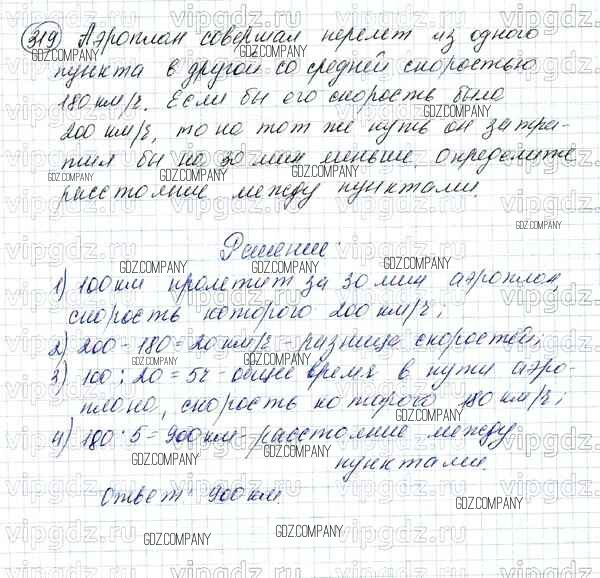 319 Аэроплан совершал перелет из одного
пункта в другой со средней скоростью
180 км/ч. Если бы его скорость была
200 км/ч, то на тот же путь он затра-
тил бы на 30 мин меньше. Определите
расстояние между пунктами.
Решение:
1) 100 км пролетит за 30 мин аэроплан,
скорость которого 200 км/ч;
2) 200 - 180 = 20 км/ч - разница скоростей;
3) 100 : 20 = 5ч - общее время в пути аэро-
плана, скорость которого 180 км/ч;
4) 180 · 5 = 900 км - расстояние между
пунктами.
Ответ: 900 км.